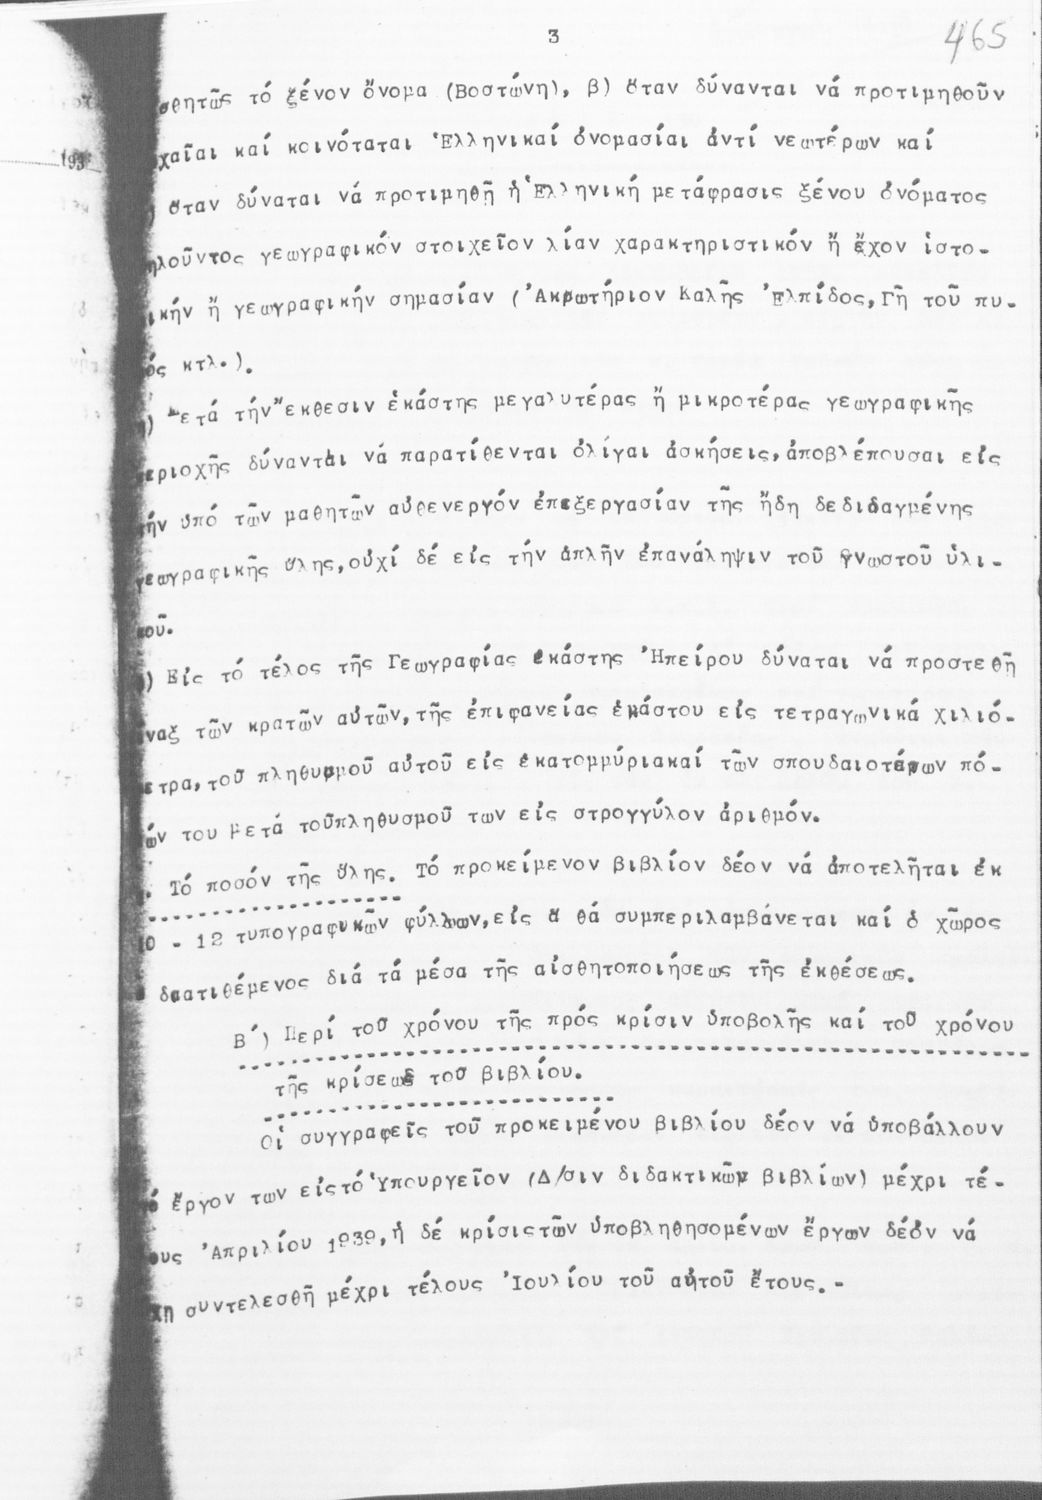 3
465
σθητῶς τό ξένον ὄνομα (Βοστώνη), β) ὅταν δύνανται νά προτιμηθοῦν
χαῖαι καί κοινόταται Ἑλληνικαί ὀνομασίαι ἀντί νεωτέρων καί
) ὅταν δύναται νά προτιμηθῇ ἡ Ἑλληνική μετάφρασις ξένου ὀνόματος
ηλοῦντος γεωγραφικόν στοιχεῖον λίαν χαρακτηριστικόν ἤ ἔχον ἱστο-
ικήν ἤ γεωγραφικήν σημασίαν (Ἀκρωτήριον Καλῆς Ἐλπίδος, Γῆ τοῦ πυ-
ός κτλ.).
) Μετά τήν ἔκθεσιν ἑκάστης μεγαλυτέρας ἤ μικροτέρας γεωγραφικῆς
εριοχῆς δύνανται νά παρατίθενται ὀλίγαι ἀσκήσεις, ἀποβλέπουσαι εἰς
τήν ὑπό τῶν μαθητῶν αὐθενεργόν ἐπεξεργασίαν τῆς ἤδη δεδιδαγμένης
γεωγραφικῆς ὕλης, οὐχί δέ εἰς τήν ἁπλῆν ἐπανάληψιν τοῦ γνωστοῦ ὑλι-
κοῦ.
) Εἰς τό τέλος τῆς Γεωγραφίας ἑκάστης Ἠπείρου δύναται νά προστεθῇ
ίναξ τῶν κρατῶν αὐτῶν, τῆς ἐπιφανείας ἑκάστου εἰς τετραγωνικά χιλιό-
ετρα, τοῦ πληθυσμοῦ αὐτοῦ εἰς ἑκατομμύριακαί τῶν σπουδαιοτέρων πό-
ών του μετά τοῦπληθυσμοῦ των εἰς στρογγύλον ἀριθμόν.
. Τό ποσόν τῆς ὕλης. Τό προκείμενον βιβλίον δέον νά ἀποτελῆται ἐκ
10 - 12 τυπογραφικῶν φύλλων, εἰς ἅ θά συμπεριλαμβάνεται καί ὁ χῶρος
διατιθέμενος διά τά μέσα τῆς αἰσθητοποιήσεως τῆς ἐκθέσεως.
Β΄) Περί τοῦ χρόνου τῆς πρός κρίσιν ὑποβολῆς καί τοῦ χρόνου
τῆς κρίσεως τοῦ βιβλίου.
Οἱ συγγραφεῖς τοῦ προκειμένου βιβλίου δέον νά ὑποβάλλουν
τό ἔργον των εἰςτό Ὑπουργεῖον (Δ/σιν διδακτικῶν βιβλίων) μέχρι τέ-
ους Ἀπριλίου 1939, ἡ δέ κρίσιςτῶν ὑποβληθησομένων ἔργων δέον νά
χῃ συντελεσθῆ μέχρι τέλους Ἰουλίου τοῦ αὐτοῦ ἔτους.-